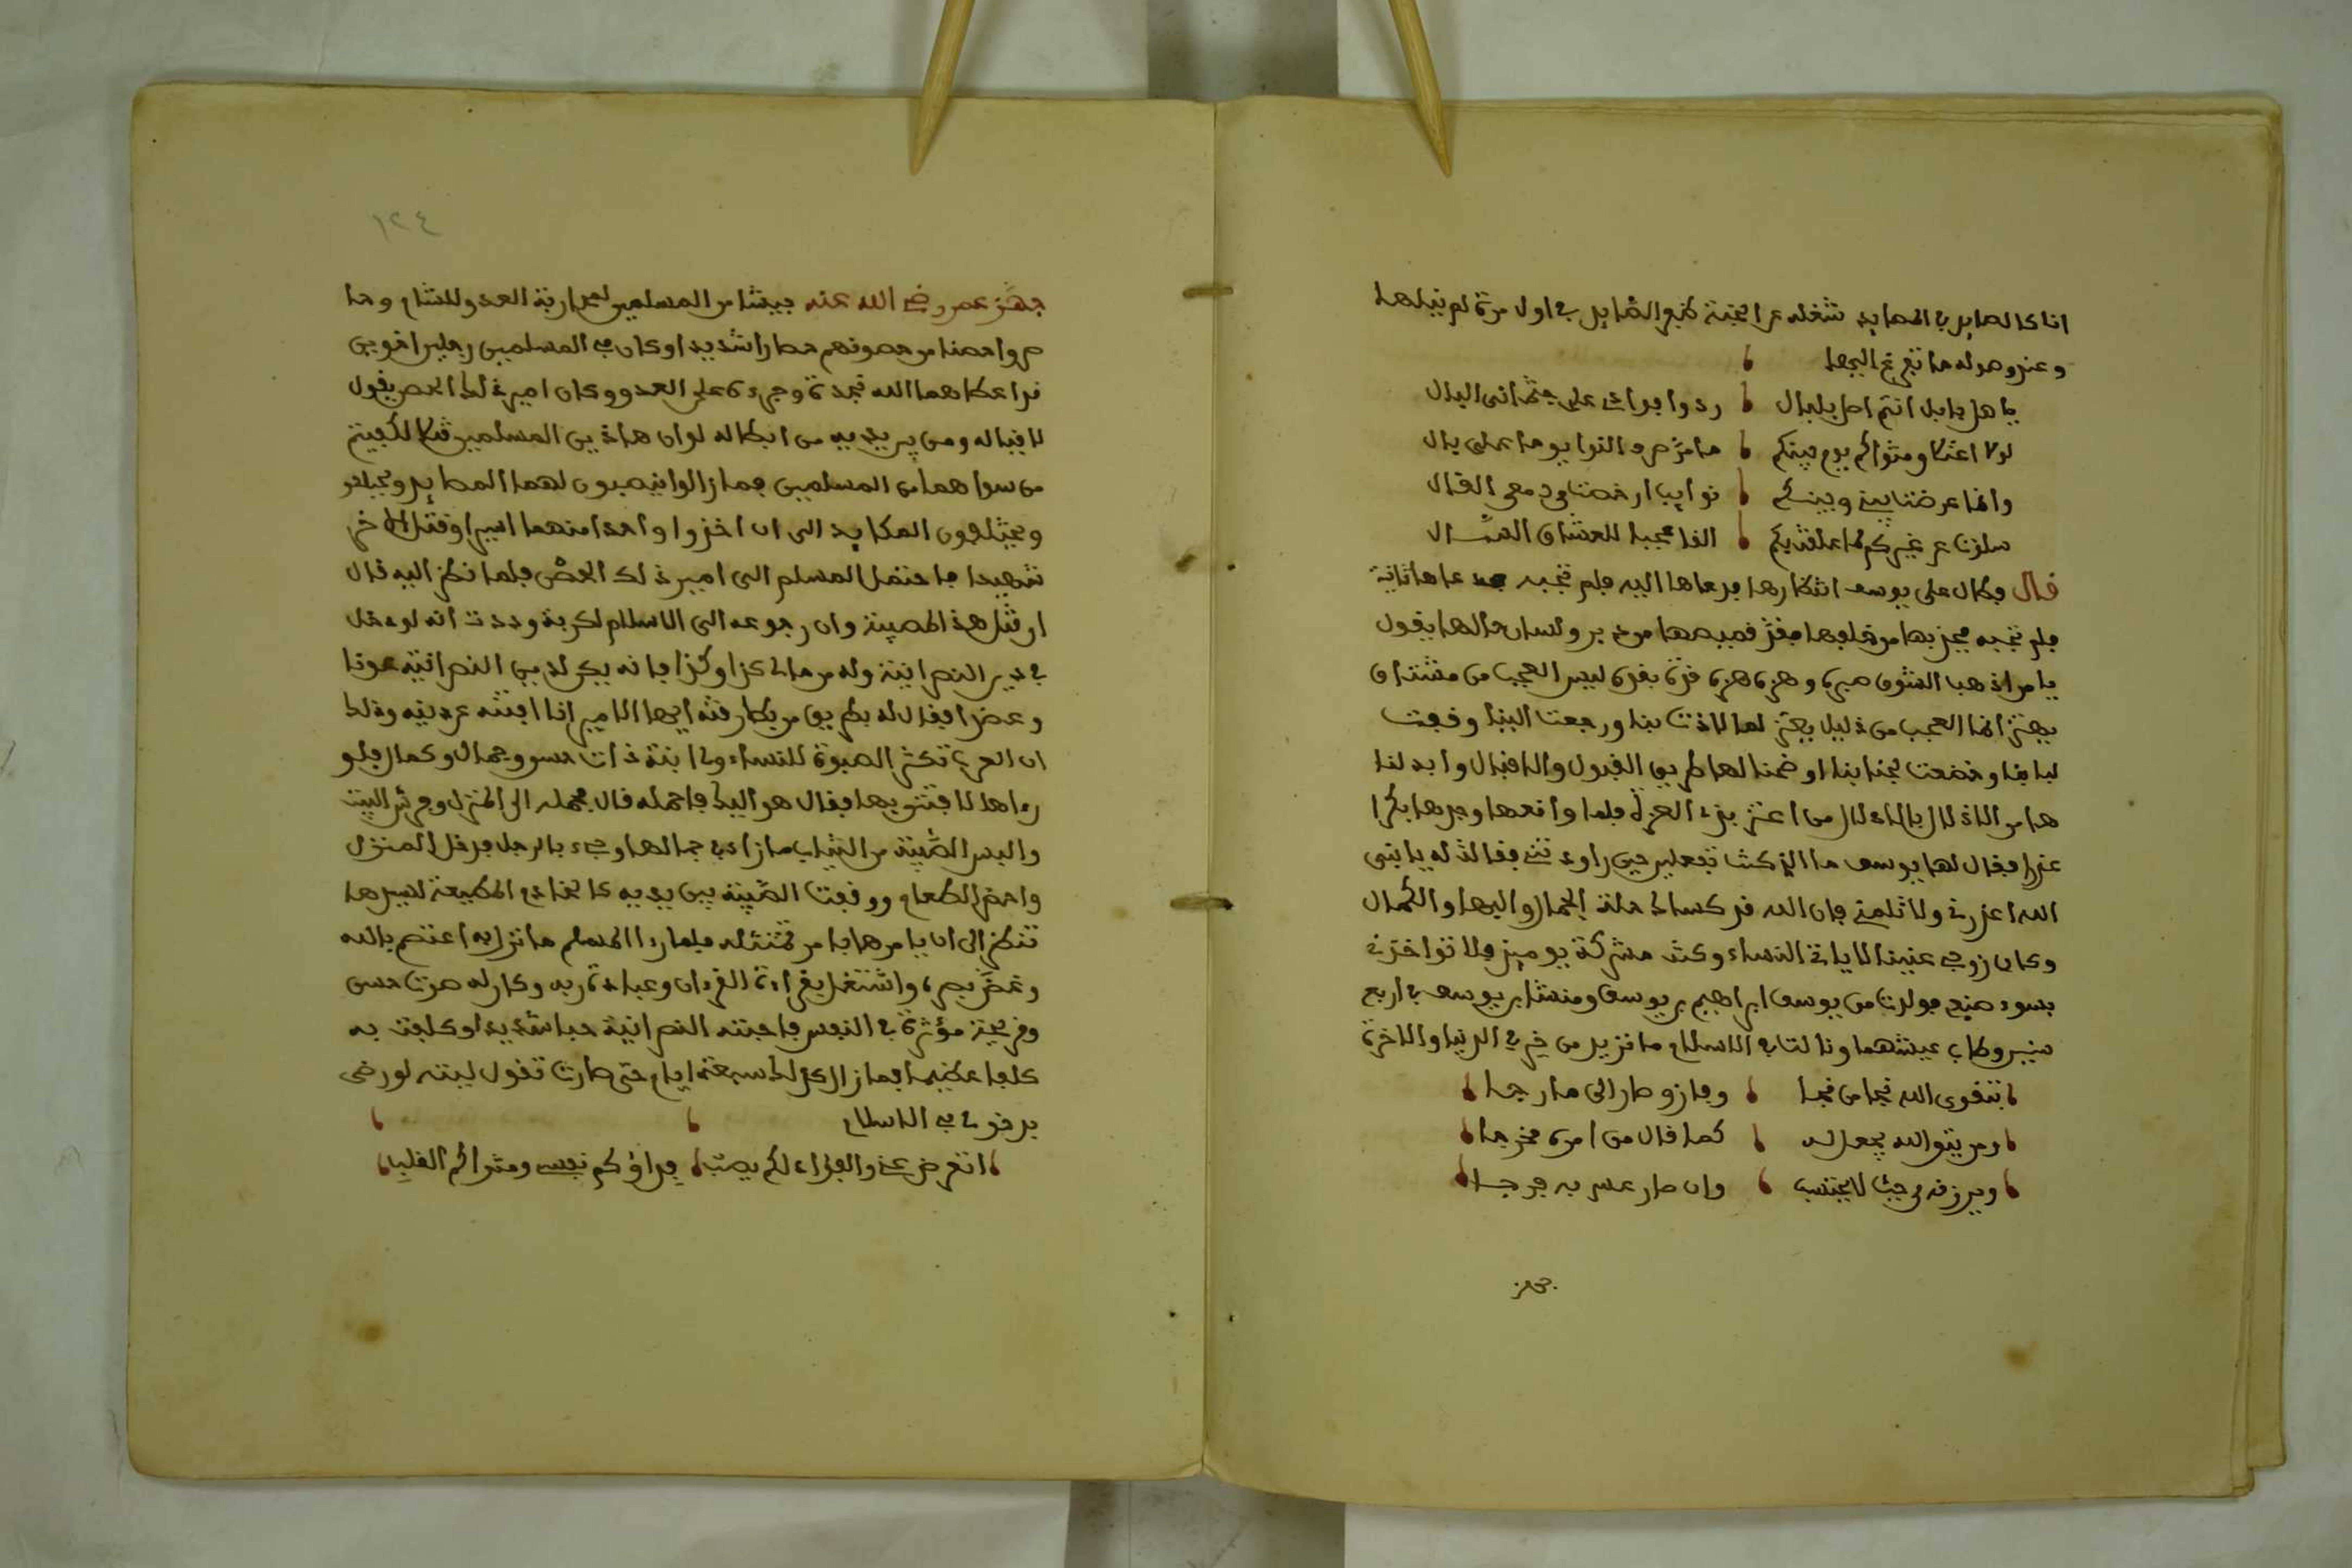 اناى الصايد بالمصايد شغله عن الجنة كنع الصايد في اول مرة لم ينلها
وعنزو صوله ما تفرغ اليها
يا هل بابل انتم اصل بلبال ردوا فوادي على جثماني البال
لولا اعتنا ومثواكم يوم بينكم ما مزصرو النوا يوما على بال
وانما عرضتا بيني وبينكم نوايب ارخصتا من دمعي الغال
سلوتا عن غيركم لما علقت بكم الفا عجبا للعشاق السال
قال وطال على يوسف انتظارها فدعاها اليه فلم تجبه عاها ثانية
فلم تجبه فجذبها من خلفها فقد قميصها من دبر ولسان حالها يقول
يا من اذهب الشوق صبره وهزه هزه قرة بفرة ليس العجب من مشتاق
يهتز انما العجب من ذليل يعتز لما لاذت بنا ورجعت الينا وقفت
لبابنا وخضعت لجنابنا اوضحنا لها طريق القبول والاقبال وابدلنا
هامن الاذلال بالادلال من اعتز بذي العز فلما واقعها وجدها بكرا
عذرا فقال لها يوسف ما الذي كنت تفعلين حين راودتني فقالت له يا نبي
الله اعذرني ولا تلمني فان الله قد كساك حلة الجمال والبها والكمال
وكان زوجي عنينا لا ياتي النساء وكنت مشركة يوميذ فلا تواخذني
بسوء صنيع فولدت من يوسف ابراهيم بن يوسف ومنشا بن يوسف في اربع
سنين وطاب عيشهما ونالتا في الاسلام ما تزيد من خير في الدنيا والاخرة
بتقوى الله نجا من نجا وفاز وصار الى ما رجا
ومن يتق الله يجعل له كما قال من امره مخرجا
ويرزقه من حيث لا يحتسب وان صار عسر به فرجا
جهز
١٢٤
جهز عمر رضي الله عنه جيشا من المسلمين لمحاربة العدو للشام وحا
صروا حصنا من حصونهم حصارا شديدا وكان في المسلمين رجلين اخوين
قد اعطاهما الله نجدة وجرءة على العدو وكان امير ذلك الحصن يقول
لاقياله ومن بين يديه من ابطاله لو ان هاذين المسلمين قتلا لكفيتم
من سواهما من المسلمين فما زالوا ينصبون لهما المصايد ويحيلو
ويحتلفون المكايد الى ان اخذوا واحدا منهما اسيرا وقتل الاخر
شهيدا فاحتمل المسلم الى امير ذلك الحصن فلما نظر اليه قال
ان قتل هذا لمصيبة وان رجوعه الى الاسلام لكربة وددت انه لو دخل
في دين النصرانية وله من مالى كذا وكذا فانه يكون لدين النصرانية عونا
وعضدا فقال له بطريق من بطارقته ايها الامير انا افتنه عن دينه وذلك
ان العرب تكثر الصبوة للنساء ولي ابنة ذات حسن وجمال وكمال فلو
رءاها لافتتن بها فقال هو اليك فاحمله قال فحمله الى المنزل وجرد البنت
والبس الصبية من الثياب ما زاد في جمالها وجيء بالرجل فدخل المنزل
واحضر الطعام ووقفت الصبية بين يديه كالخادم المطيعة لسيدها
تنتظر الى ان يامرها بامر تمتثله فلما رءا المسلم ما نزل به اعتصم بالله
وغض بصره واشتغل بقراءة القرءان وعبادة ربه وكان له صوت حسن
وقريحة مؤثرة في النفس فاحبته النصرانية حبا شديدا وكلفت به
كلفا عظيما فما زال كذلك سبعة ايام حتى صارت تقول ليته لو رضى
بدخولي في الاسلام
اتعرض عني والفؤاد لكم يصب فداؤكم نفسي ومثواكم القلب